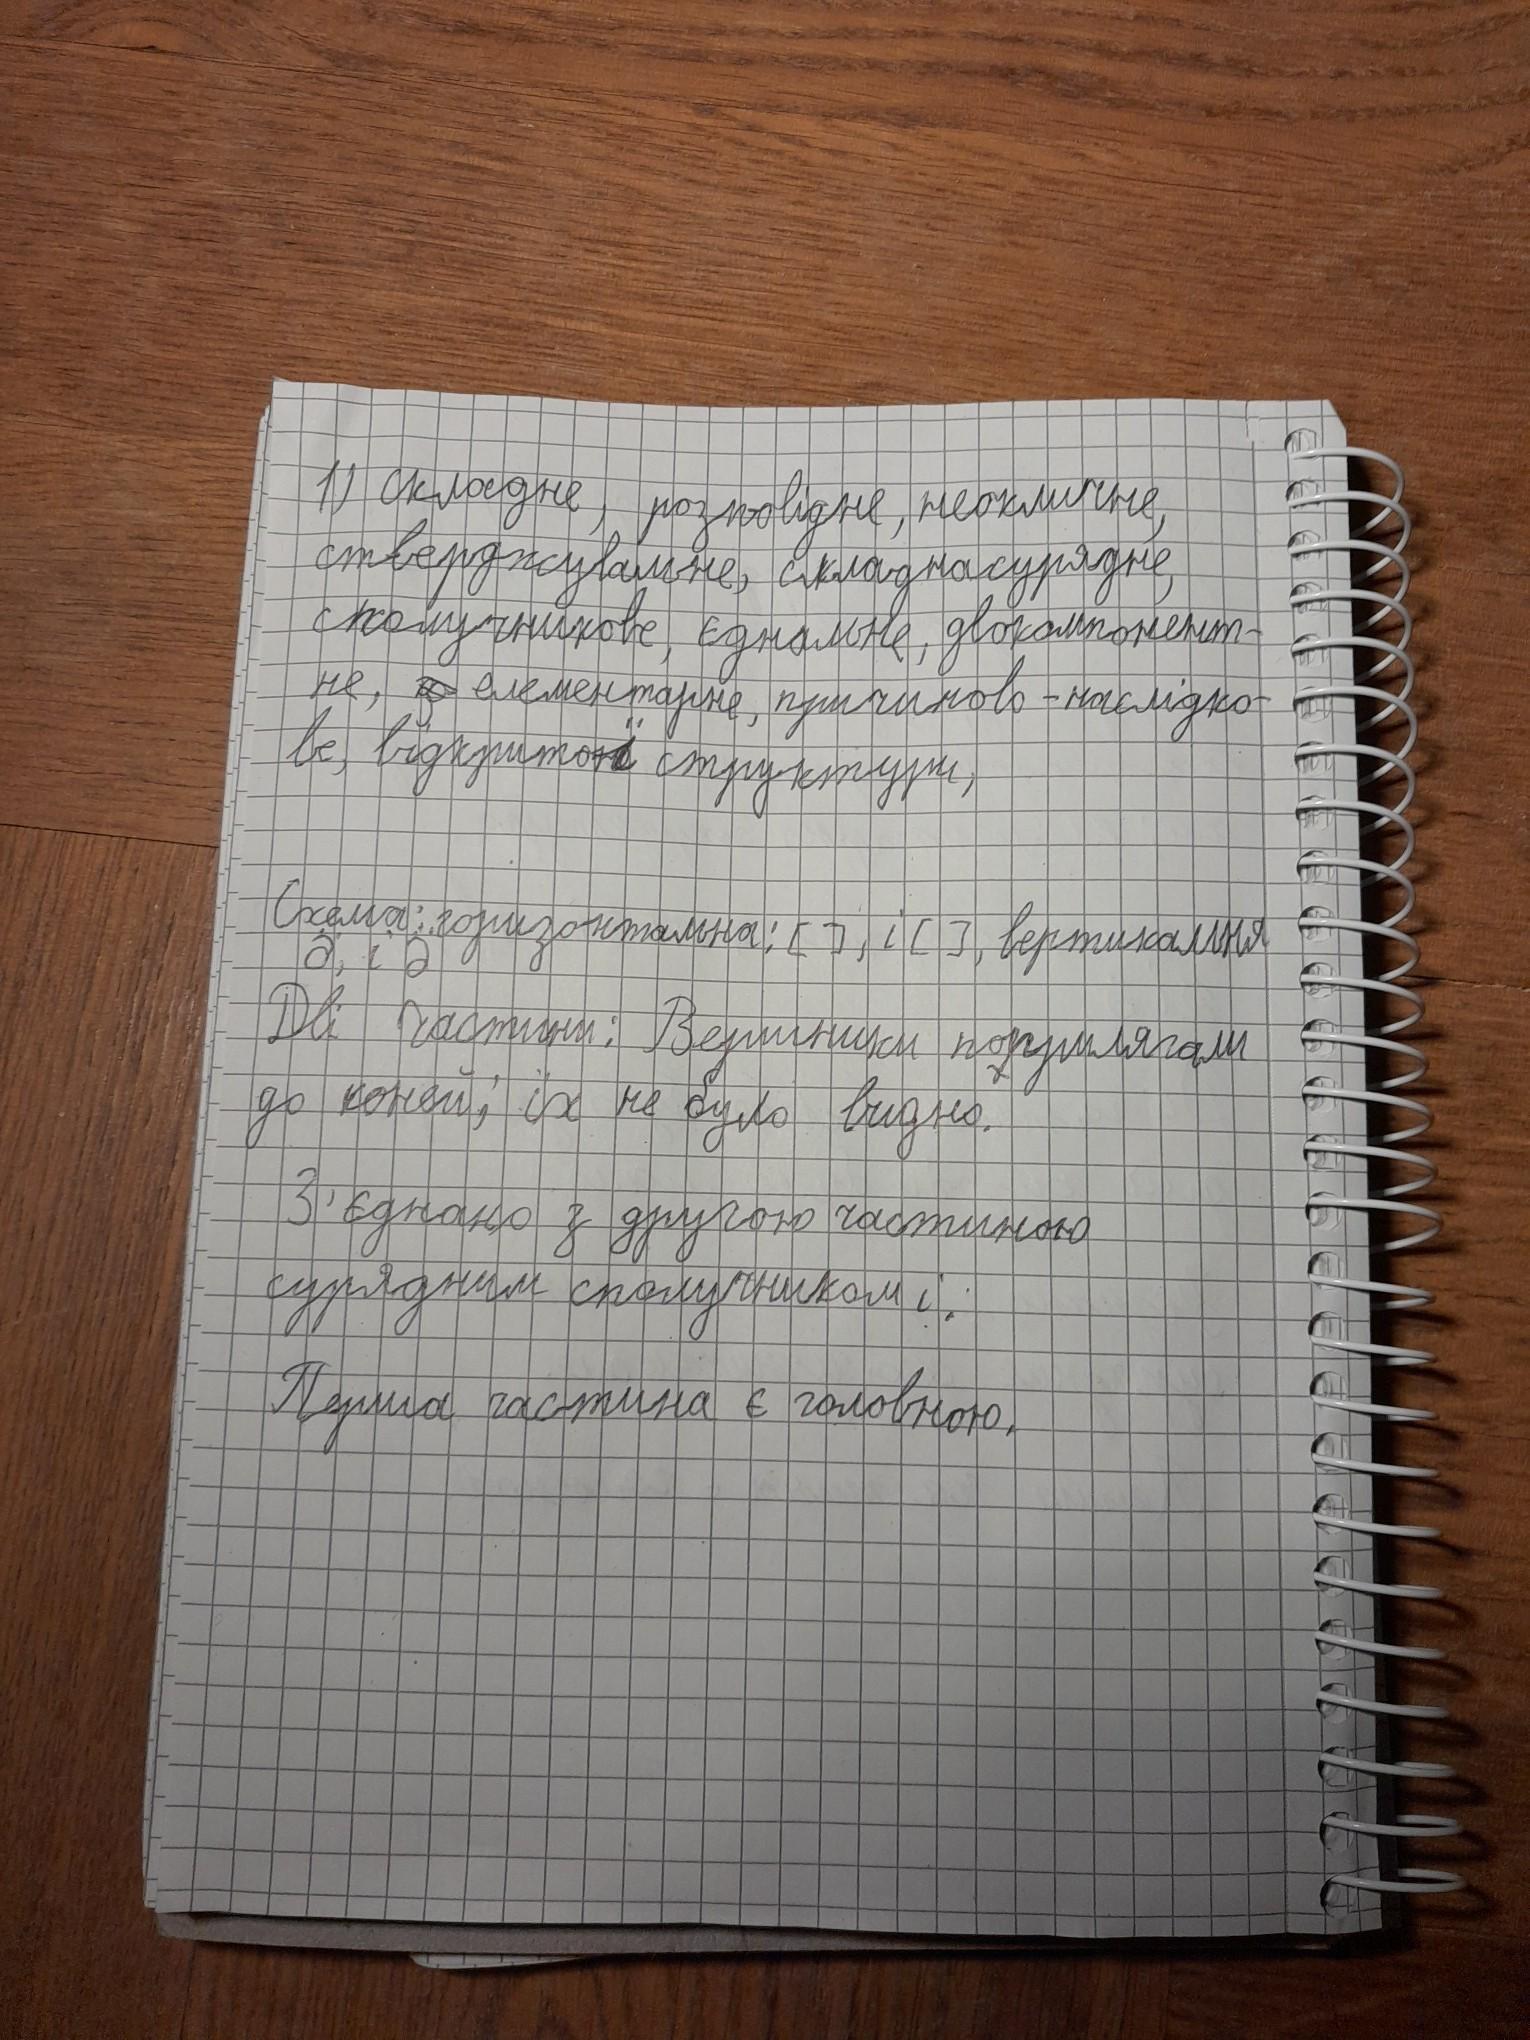 1) Складне, розповідне, неокличне,
стверджувальне, складнасурядне,
сполучникове, єднальне, двокомпонент-
не, елементарне, причиново-наслідко-
ве, відкритої структури,
Схема: горизонтальна: [ ], і [ ], вертикальня
Дві частини: Вершники поприлягали
до коней; їх не було видно.
З'єднано з другою частиною
сурядним сполучником і.
Перша частина є головною.